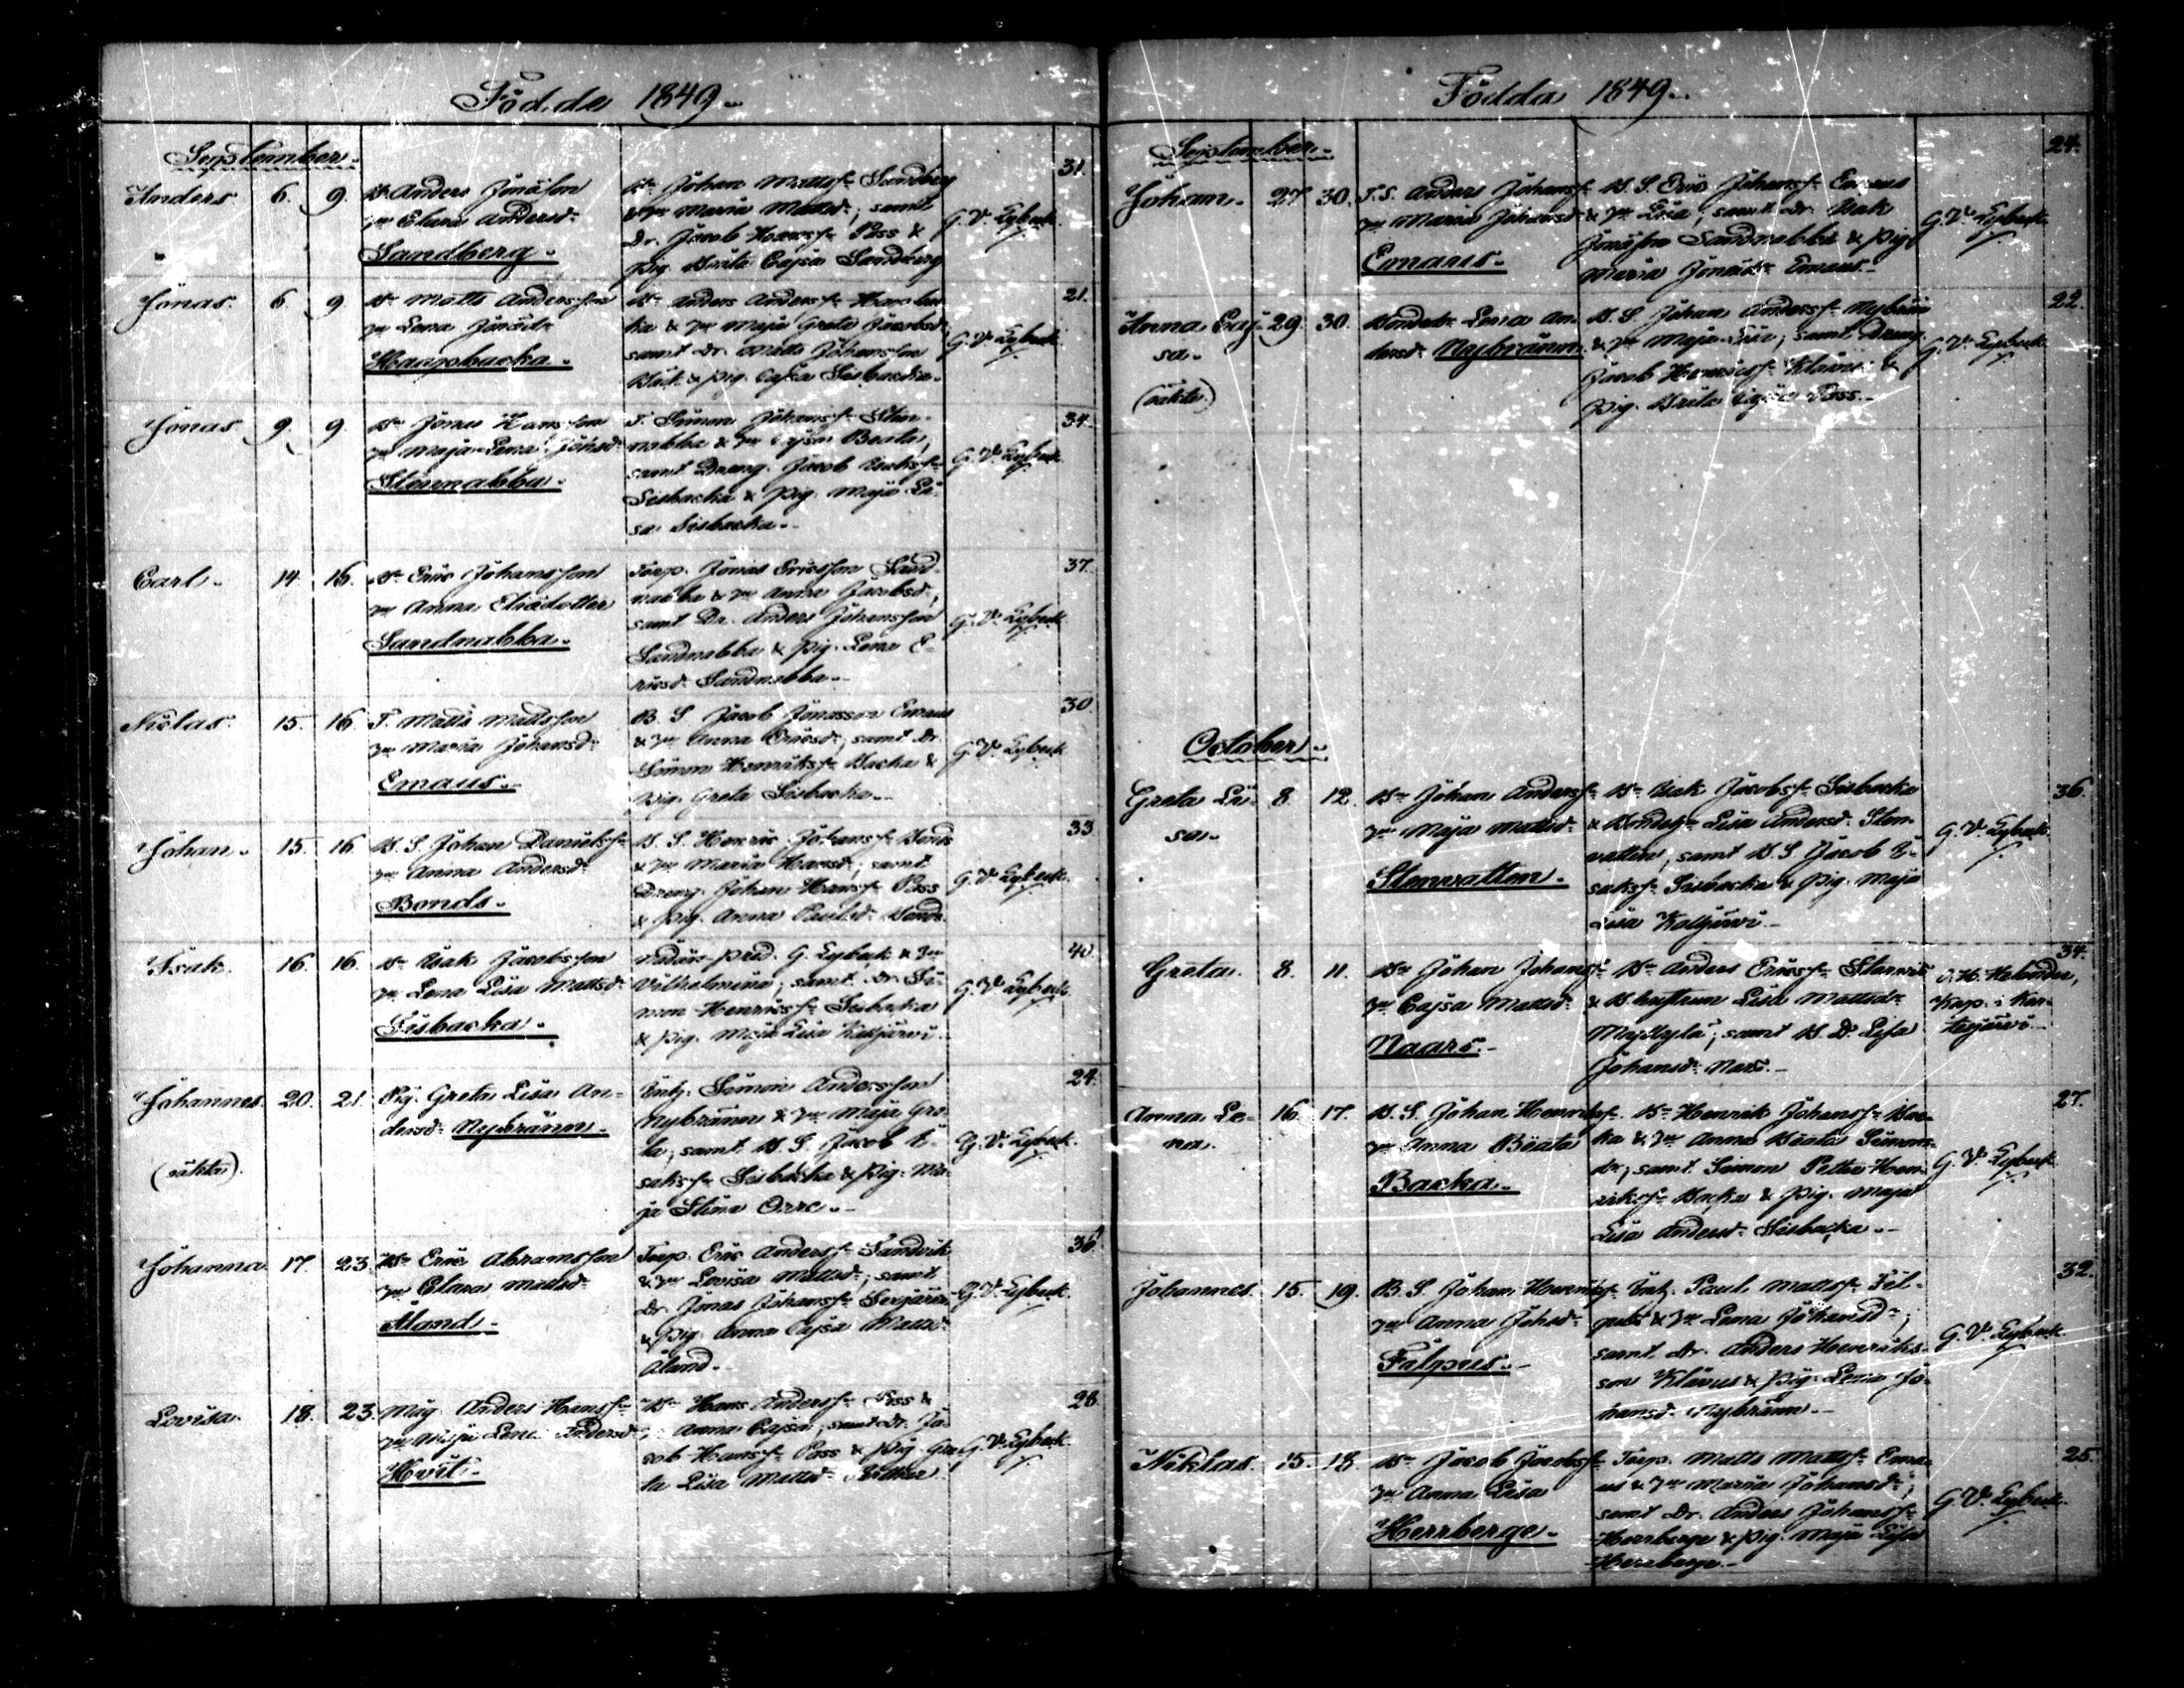 Födde 1849.
September.
Anders 6. 9. Bn Anders Jonasson
hu Clara Andersd:
Sandberg.
Bn Johan Mattsf: Sandberg
& hu Maria Mattsd:, samt
Dr. Jacob Hansf: Pass &
pig. Brita Cajsa Sandberg
G. V. Lybeck
31.
Jonas. 6. 9. Bn Matts Andersson
hu Lena Jonsdr
Haapabacka.
Bn Anders Andersf:
& hu Maja Greta Jacobsd:
samt Dr. Matts Johansson
& pig. Cajsa Sisbacka.
G. V. Lybeck
21.
Jonas 9. 9. Bn Jonas Hansson
hu Maja Lena Johsd:
Stennabba.
T. Simon Johansf: Sten-
nabba & hu Cajsa Beata,
samt Dreng. Jacob Isaksf:
Sisbacka & pig. Maja Li-
sa Sisbacka.
G. V. Lybeck
34.
Carl. 14. 16. Bn Eric Johansson
hu Anna Elisdotter
Sandnabba.
Torp. Jonas Ericsson Sand-
nabba & hu Anna Jacobsd:,
samt Dr. Anders Johansson
Sandnabba & pig. Lena E-
ricsd: Sandnabba.
G. V. Lybeck
37.
Niclas. 15. 16. T. Matts Mattsson
hu Maria Johansd:
Emaus.
B. S. Jacob Jonasson Emaus
& hu Anna Ericsd:, samt Dr.
Simon Henriksf: Backa &
pig. Greta Sisbacka.
G. V. Lybeck
30.
Johan. 15. 16. B. S. Johan Danielsf:
hu Anna Andersd:
Bonds.
B. S. Henric Johansf: Bonds
& hu Maria Hansd:, samt
Dreng. Johan Hansf: Pass
& pig. Anna Paulsd: Bonds.
G. V. Lybeck
33.
Isak. 16. 16. Bn Isak Jacobsson
hu Lena Lisa Mattsd:
Sisbacka.
pred. G. Lybeck & hu
Vilhelmina, samt Dr. Si-
mon Henricsf: Sisbacka
& pig. Maja Lisa Kaitjärvi.
G. V. Lybeck
40.
Johannes. 20. 21. Pig. Greta Lisa An-
dersd: Nybränn.
(oäkta)
Inh. Simon Andersson
Nybränn & hu Maja Gre-
ta, samt B. S. Jacob I-
saksf: Sisbacka & pig. Ma-
ja Stina Orre.
G. V. Lybeck.
24.
Johanna. 17. 23. Bn Eric Abramsson
hu Clara Mattsd:
Åland.
Torp. Eric Andersf: Sandvik
& hu Lovisa Mattsd:, samt
Dr. Jonas Johansf:
& pig. Anna Cajsa Mattsd:
Åland.
G. V. Lybeck.
36.
Lovisa. 18. 23. Mag. Anders Hansf:
hu Maja Lena Andersd:
Hvit.
Bn Hans Andersf: Pass &
hu Anna Cajsa, samt Dr. Ja-
cob Hansf: Pass & pig. Gre-
ta Lisa Mattsd:
G. V. Lybeck.
28.
Födda 1849.
September.
Johan. 27 30. T. S. Anders Johansf:
hu Maria Johansd:
Emaus.
B. S. Eric Johansf: Emaus
& hu Lisa, samt Dr. Isak
Jonasson Sandnabba & pig.
Maria Jonaisd: Emaus.
G. V. Lybeck.
24.
Anna Caj-
sa.
(oäkta)
29. 30. Bondedr Lena An-
dersd: Nybränn.
B. S. Johan Andersf: Nybränn
& hu Maja Lisa, samt Dreng.
Jacob Henricsf: Klävus &
pig. Brita Cajsa Pass.
G. V. Lybeck.
22.
October.
Greta Li-
sa.
8. 12. Bn Johan Andersf:
hu Maja Mattsd:
Stenvatten.
Bn Isak Jacobsf: Sisbacka
& Bondehu Lisa Andersd: Sten-
vatten, samt B. S. Jacob I-
saksf: Sisbacka & pig. Maja
Lisa Kaitjärvi.
G. V. Lybeck.
36.
Greta. 8. 11. Bn Johan Johansf:
hu Cajsa Mattsd:
Naars.
Bn Anders Ericsf:
& B. hustrun Lisa Mattsd:
samt B. D. Lisa
Johansd: Nars.
Helander,
Kap. i Kor-
tesjärvi.
34.
Anna Le-
na.
16. 17. B. S. Johan Henriksf:
hu Anna Beata
Backa.
Bn Henrik Johansf: Bac-
ka & hu Anna Beata Simons-
dr, samt Simon Petter Hen-
riksf: Backa & pig. Maja
Lisa Andersd: Sisbacka.
G. V. Lybeck.
27.
Johannes. 15. 19. B. S. Johan Henriksf:
hu Anna Johsd:
Fälpus.
Inh. Paul Mattsf: Fäl-
pus & hu Lena Johansd:,
samt Dr. Anders Henriks-
son Klävus & pig. Lena Jo-
hansd: Nybränn.
G. V. Lybeck.
32.
Niklas. 15. 18. Bn Jacob Jacobsf:
hu Anna Lisa
Herrberge.
Torp. Matts Mattsf: Ema-
us & hu Maria Johansd:,
samt Dr. Anders Johansf:
Herrberge & pig. Maja Lisa
Herrberge.
G. V. Lybeck.
25.